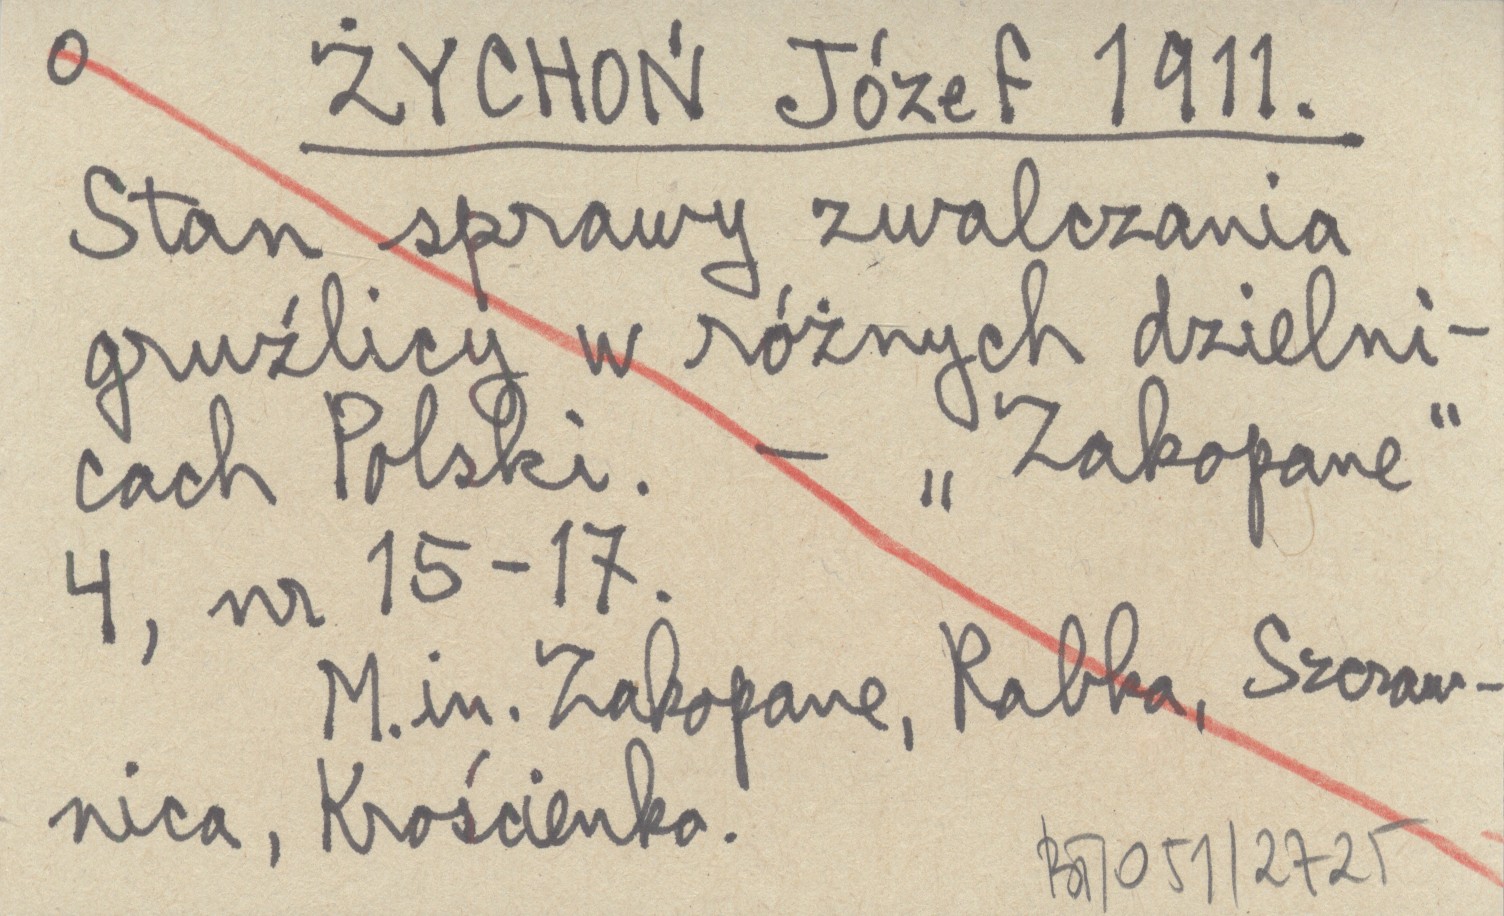 O ŻYCHOŃ Józef 1911.
Stan sprawy zwalczania
gruźlicy w różnych dzielni-
cach Polski. — „Zakopane"
4, nr 15-17.
M.in. Zakopane, Rabka, Szczaw-
nica, Krościenko.
051/2725